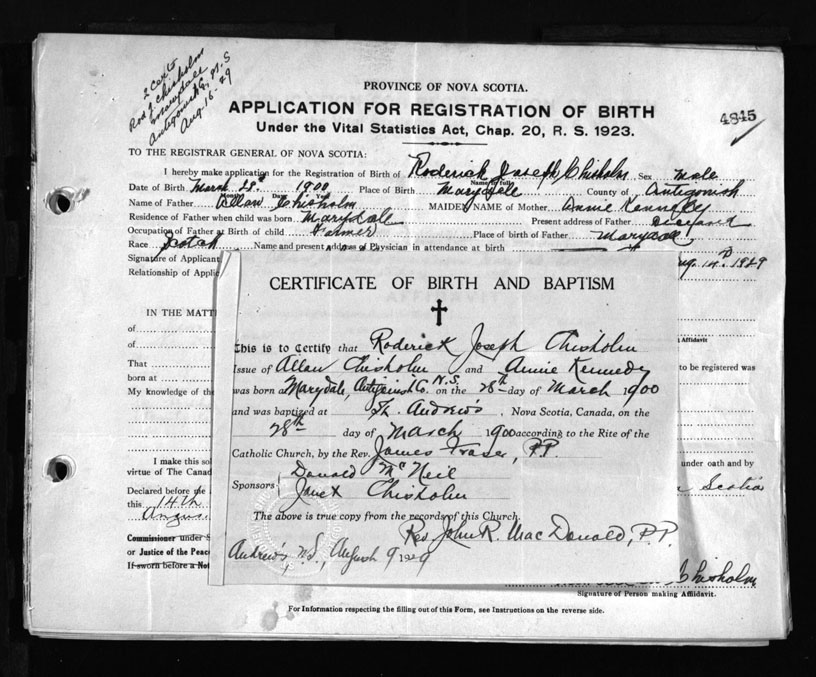 2 Certs
Rod J Chisholm
Marydale
Antigonish Co, N.S
Aug-16-29
PROVINCE OF NOVA SCOTIA.
APPLICATION FOR REGISTRATION OF BIRTH
4845
Under the Vital Statistics Act, Chap. 20, R. S. 1923.
TO THE REGISTRAR GENERAL OF NOVA SCOTIA:
I hereby make application for the Registration of Birth of Roderick Joseph Chisholm Sex Male
Name in full
Date of Birth March 28th 1900 Place of Birth Marydale County of Antigonish
Name of Father Allan Chisholm MAIDEN NAME of Mother Annie Kennedy
Residence of Father when child was born Marydale Present address of Father Deceased
Occupation of Father at Birth of child Farmer Place of birth of Father Marydale
Race Scotch Name and present address of Physician in attendance at birth
Signature of Applicant Aug. 14th 1929
Relationship of Applic
IN THE MATT
of
of
Affidavit
That to be registered was
born at
My knowledge of the
I make this sol under oath and by
virtue of The Canad
Declared before me Scotia
this 14th
Augus
Commissioner under S
or Justice of the Peace
If sworn before a Not
Chisholm
Signature of Person making Affidavit.
For Information respecting the filling out of this Form, see Instructions on the reverse side.
CERTIFICATE OF BIRTH AND BAPTISM
This is to Certify that Roderick Joseph Chisholm
Issue of Allan Chisholm and Annie Kennedy
was born at Marydale, Antigonish Co. N.S. on the 28th day of March 1900
and was baptized at St. Andrew's, Nova Scotia, Canada, on the
28th day of March 1900 according to the Rite of the
Catholic Church, by the Rev. James Fraser, P.P.
Sponsors Donald McNeil
Janet Chisholm
The above is true copy from the records of this Church.
Rev. John R. MacDonald, P.P.
Andrew's, N.S., August 9 1929